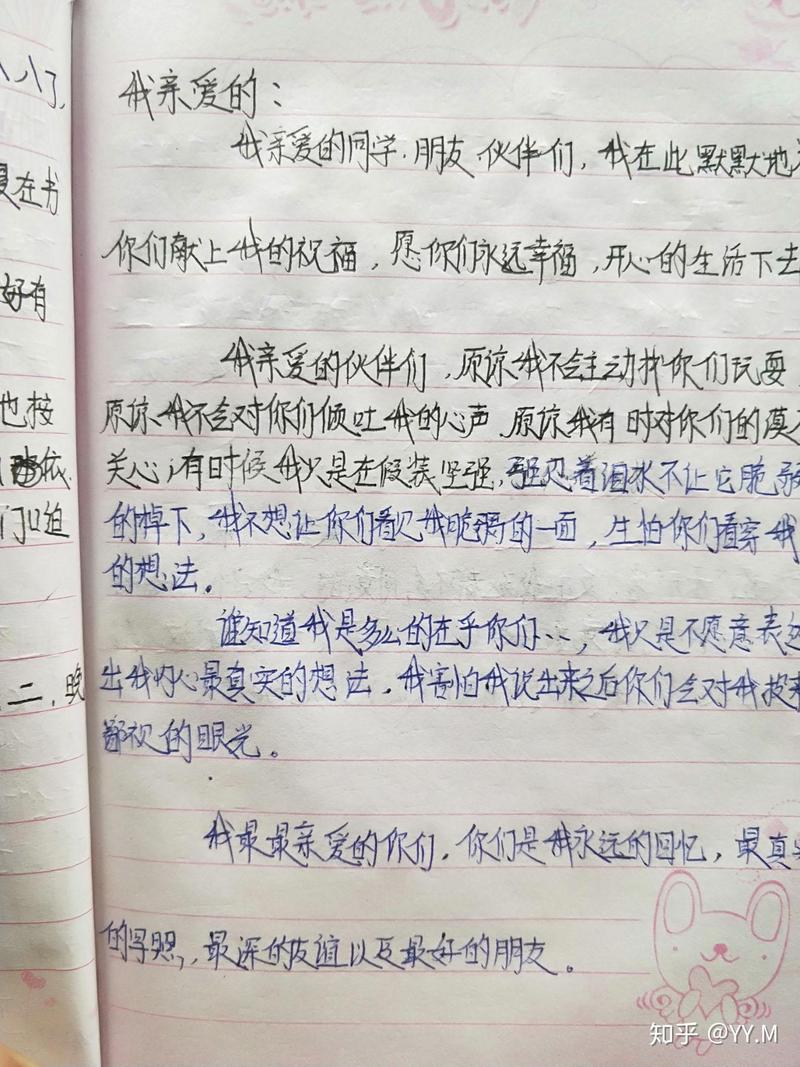 八八了,
我亲爱的：
我亲爱的同学.朋友.伙伴们，我在此默默地
在书
你们献上我的祝福，愿你们永远幸福，开心的生活下去
好有
我亲爱的伙伴们，原谅我不会主动找你们玩耍
也按
原谅我不会对你们倾吐我的心声.原谅我有时对你们的漠不
依
关心;有时候我只是在假装坚强,强忍着泪水不让它脆弱
门口迫
的掉下，我不想让你们看见我脆弱的一面，生怕你们看穿我
的想法。
谁知道我是多么的在乎你们…，我只是不愿意表达
二.晚
出我内心最真实的想法，我害怕我说出来之后你们会对我投来
鄙视的眼光。
我最最亲爱的你们，你们是我永远的回忆，最真
的，最深的友谊以及最好的朋友。
知乎 @YY.M